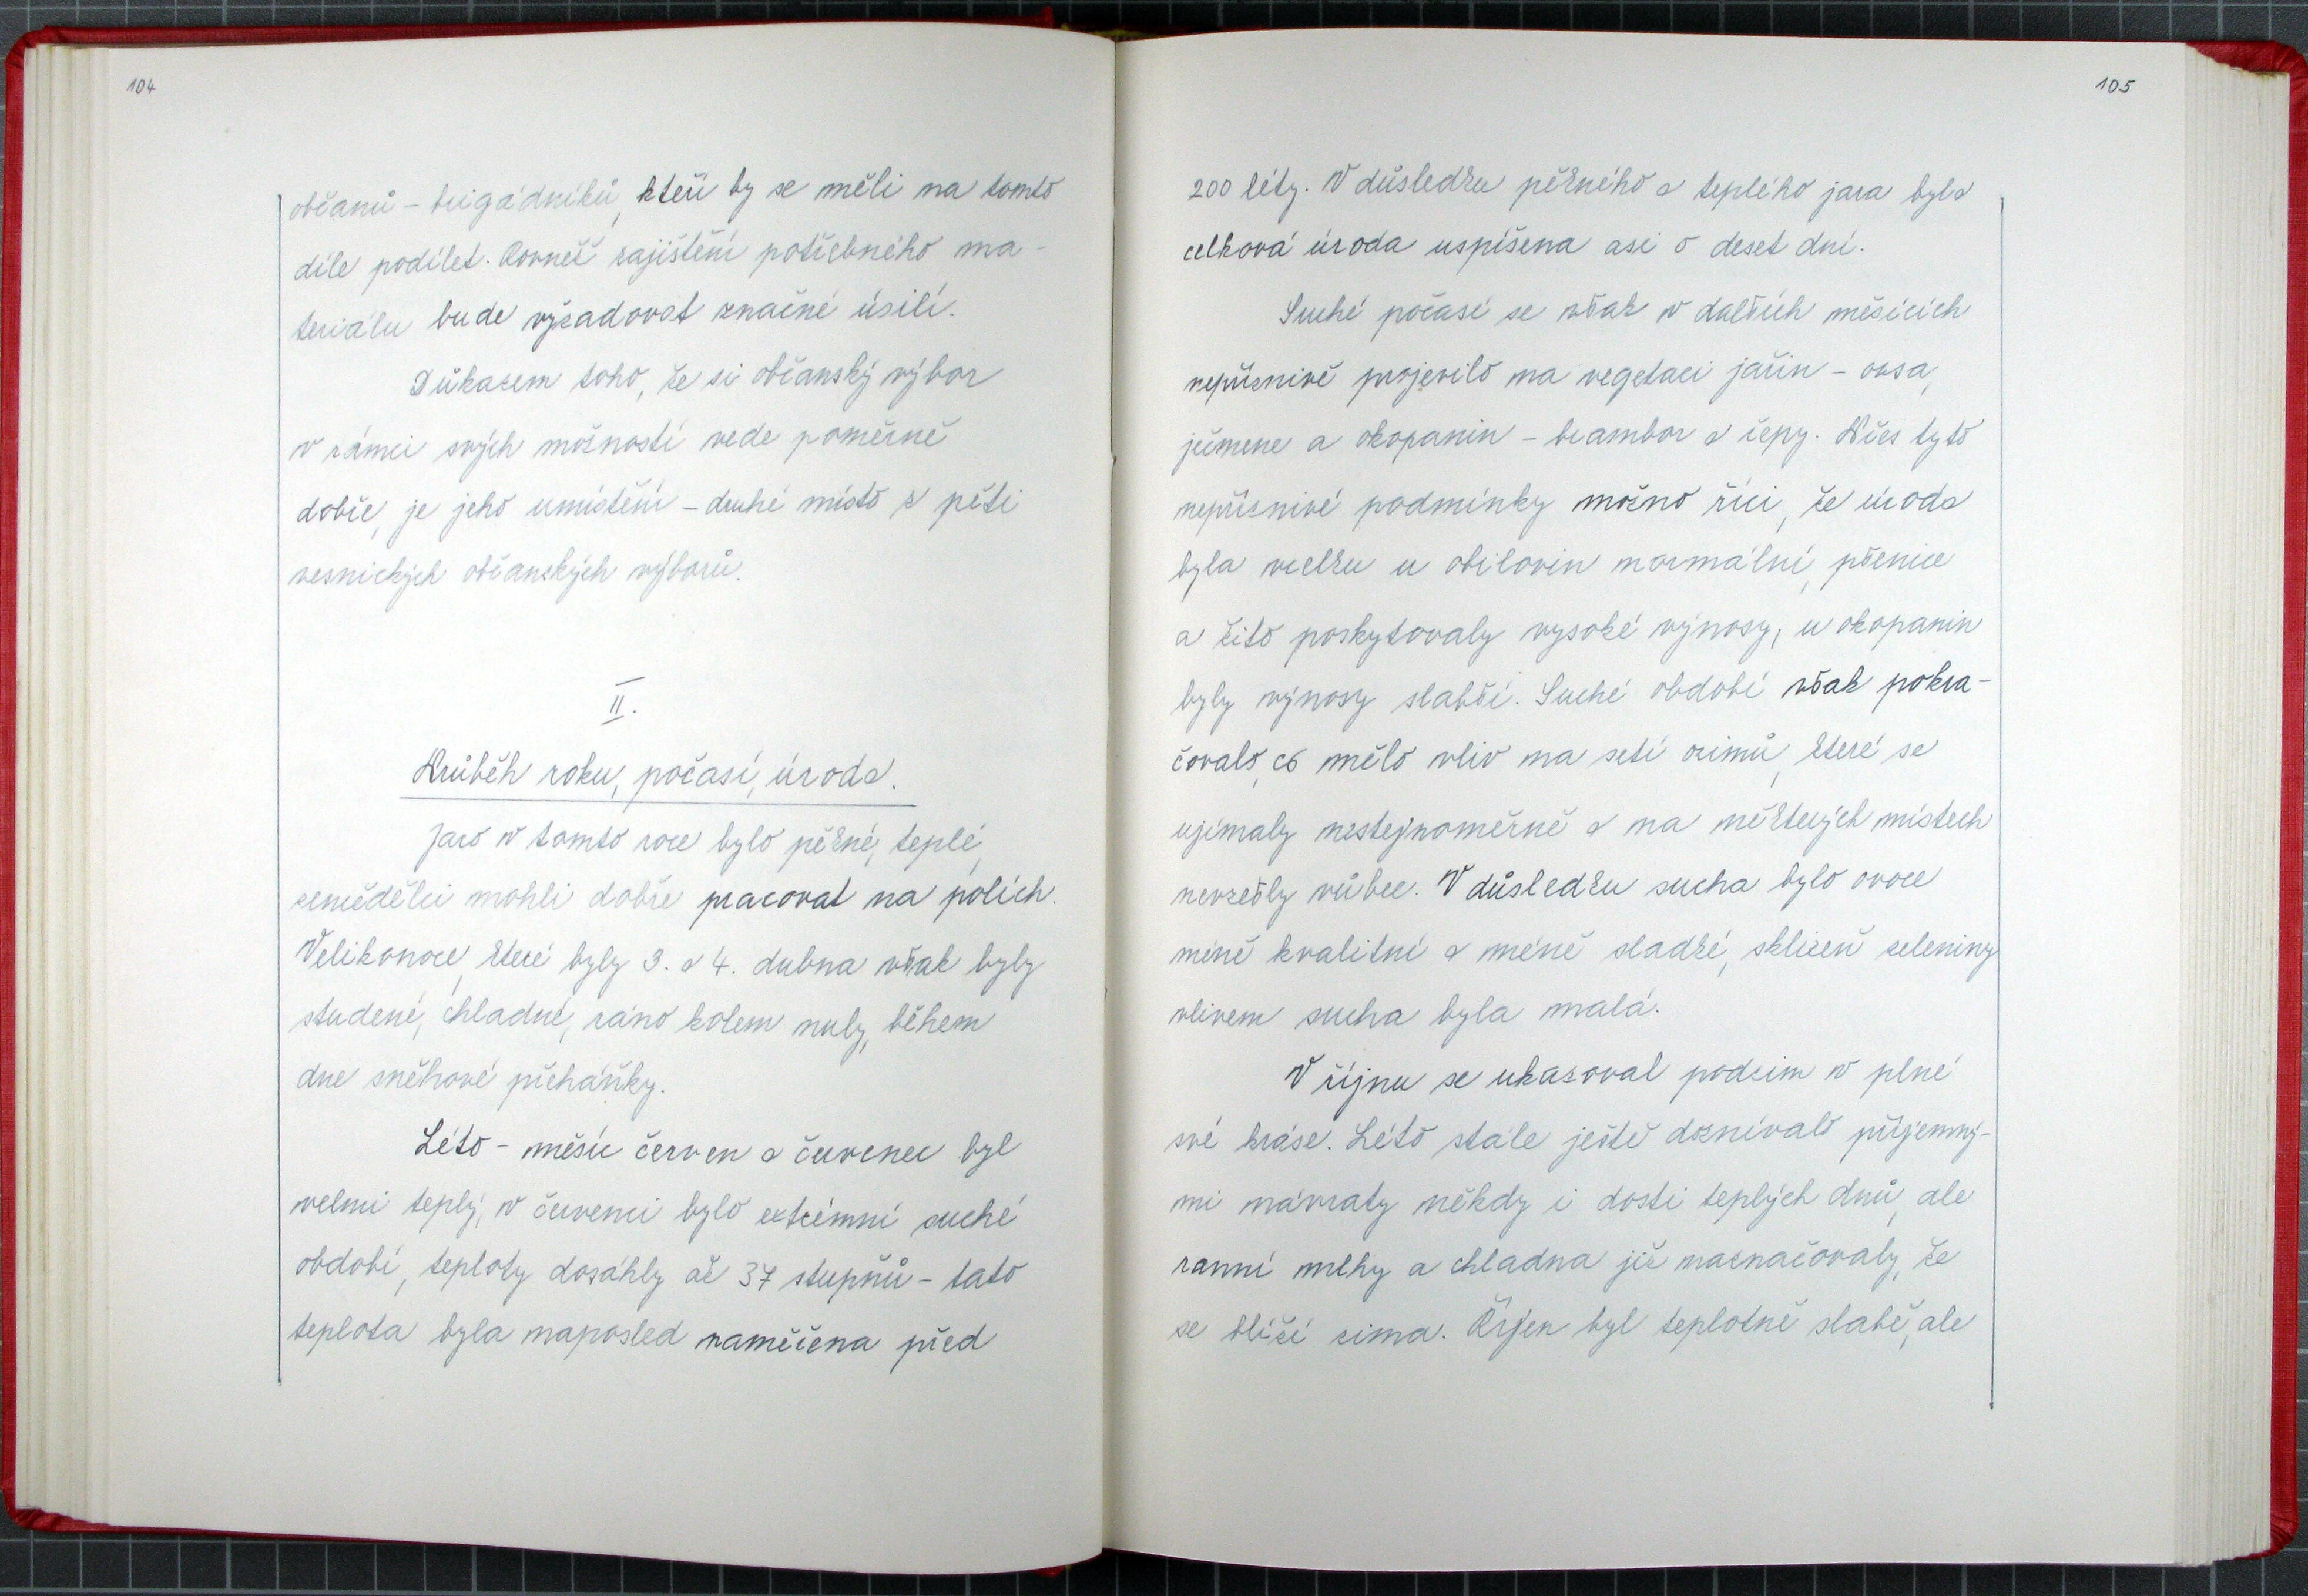 104
občanů - brigádníků, kteří by se měli na tomto
díle podílet. Rovněž zajištění potřebného ma-
teriálu bude vyžadovat značné úsilí.
Důkazem toho, že si občanský výbor
v rámci svých možností vede poměrně
dobře, je jeho umístění - druhé místo z pěti
vesnických občanských výborů.
II.
Průběh roku, počasí, úroda.
Jaro v tomto roce bylo pěkné, teplé,
zemědělci mohli dobře pracovat na polích.
Velikonoce, které byly 3. a 4. dubna však byly
studené, chladné, ráno kolem nuly, během
dne sněhové přeháňky.
Léto - měsíc červen a červenec byl
velmi teplý, v červenci bylo extrémní suché
období, teploty dosáhly až 37 stupňů - tato
teplota byla naposled naměřena před
105
200 léty. V důsledku pěkného a teplého jara byla
celková úroda uspíšena asi o deset dní.
Suché počasí se však v dalších měsících
nepříznivě projevilo na vegetaci jařin - ovsa,
ječmene a okopanin - brambor a řepy. Přes tyto
nepříznivé podmínky možno říci, že úroda
byla vcelku u obilovin normální, pšenice
a žito poskytovaly vysoké výnosy, u okopanin
byly výnosy slabší. Suché období však pokra-
čovalo, co mělo vliv na setí ozimů, které se
ujímaly nestejnoměrně a na některých místech
nevzešly vůbec. V důsledku sucha bylo ovoce
méně kvalitní a méně sladké, sklizeň zeleniny
vlivem sucha byla malá.
V říjnu se ukazoval podzim v plné
své kráse. Léto stále ještě doznívalo příjemný-
mi návraty někdy i dosti teplých dnů, ale
ranní mlhy a chladna již naznačovaly, že
se blíží zima. Říjen byl teplotně slabě, ale